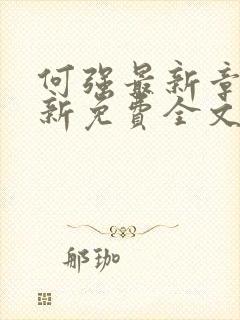 何强最新章
新免費全文
郍珈